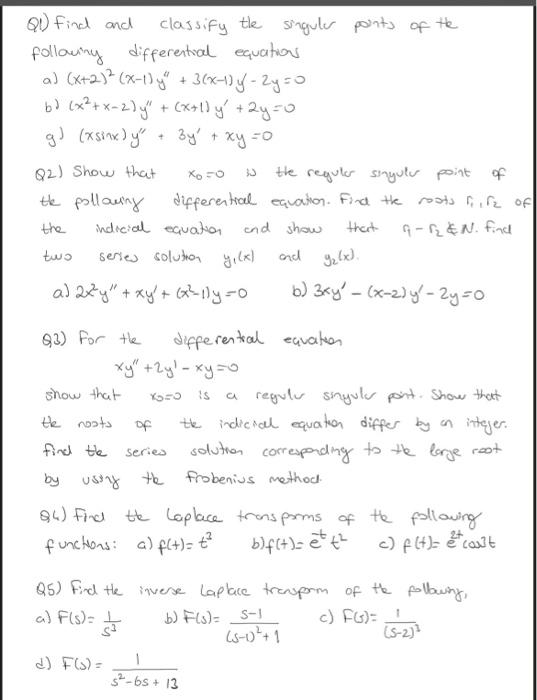 Q1) Find and classify the singular points of the
following differential equations
a) (x+2)² (x-1) y" + 3(x-1)y' - 2y = 0
b) (x²+x-2) y" + (x+1) y' + 2y = 0
g) (xsinx) y" + 3y' + xy = 0
Q2) Show that x₀=0 is the regular singular point of
the following differential equation. Find the roots r₁, r₂ of
the indicial equation and show that r₁-r₂ ∉ N. Find
two series solution y₁(x) and y₂(x).
a) 2x²y" + xy' + (x²-1)y = 0 b) 3xy' - (x-2)y' - 2y = 0
Q3) For the differential equation
xy" + 2y' - xy = 0
show that x₀=0 is a regular singular point. Show that
the roots of the indicial equation differ by an integer.
Find the series solution corresponding to the large root
by using the Frobenius method.
Q4) Find the Laplace transforms of the following
functions: a) f(t) = t³ b) f(t) = e^t t² c) f(t) = e^{2t} cos3t
Q5) Find the inverse Laplace transform of the following,
a) F(s) = 1/s³ b) F(s) = (s-1)/((s-1)²+1) c) F(s) = 1/(s-2)³
d) F(s) = 1/(s²-6s+13)